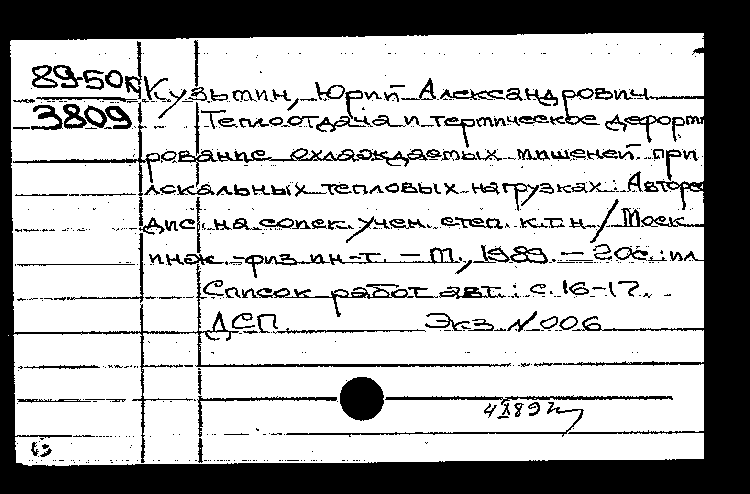 89-50к Кузьмин, Юрий Александрович
3809 Теплоотдача и термическое деформи
рование охлаждаемых мишеней при
локальных тепловых нагрузках: Авторе
дис. на соиск. учен. степ. к.т.н / Моск
инж.-физ. ин-т. – М., 1989. – 20с.: ил
Список работ авт.: с. 16-17.
ДСП Экз. N 006